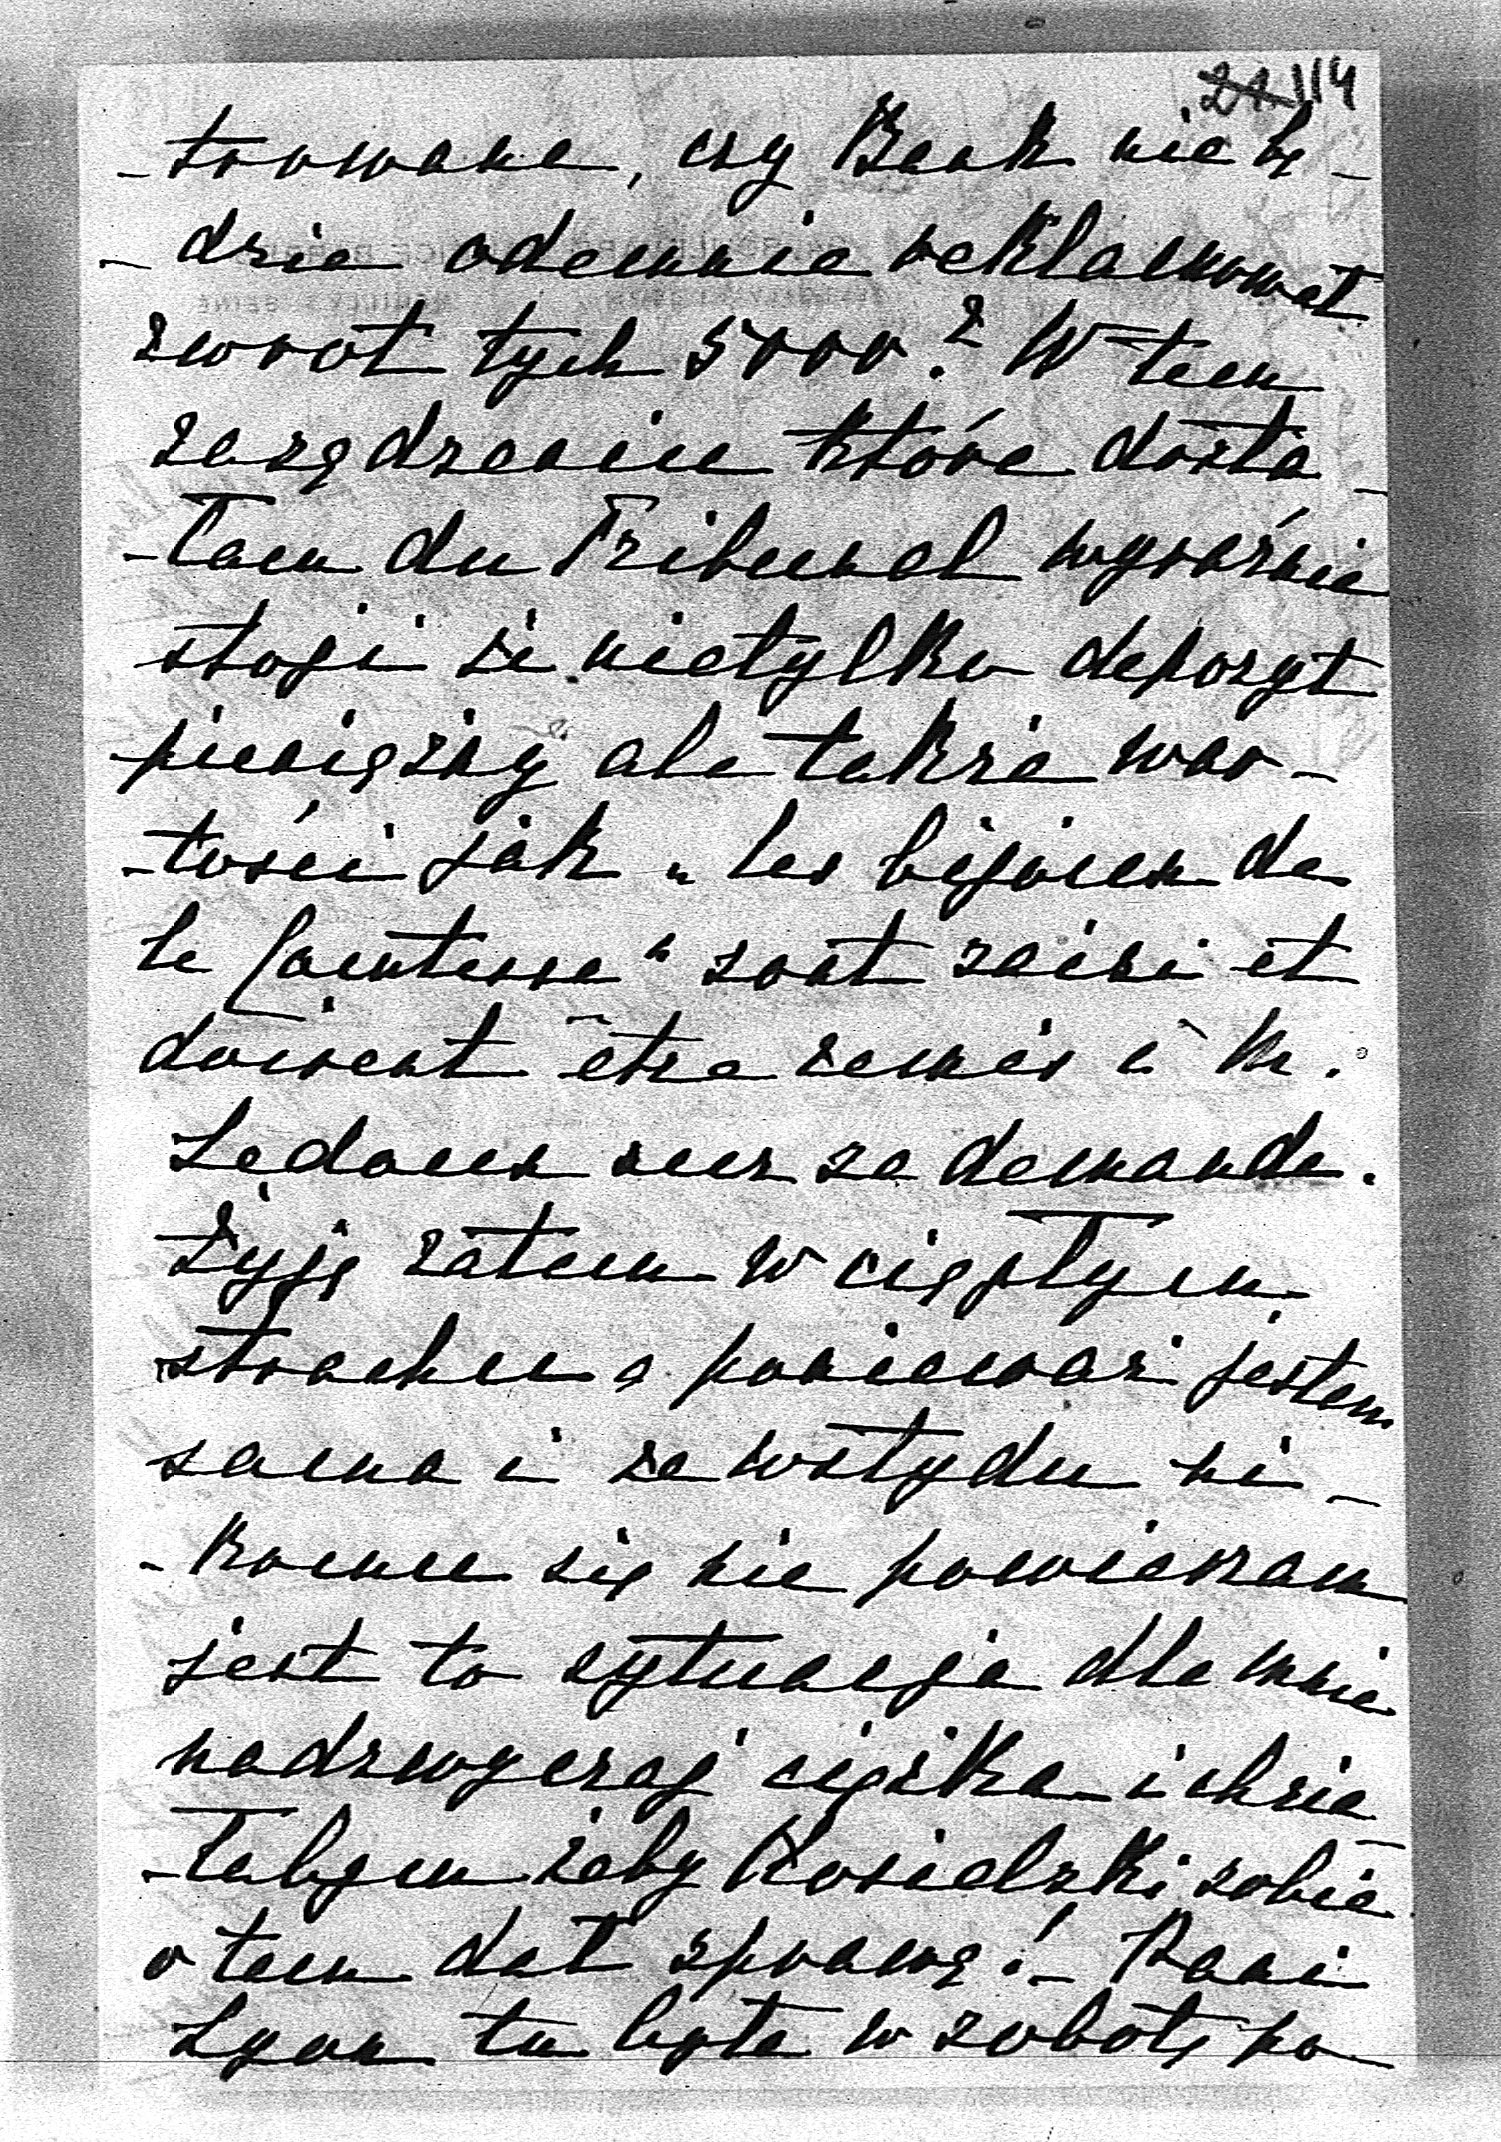 21 114
-towana, czy Bank nie bę-
-dzie odemnie reklamował
zwrot tych 5000.? W tem
zarządzeniu które dosta-
-łam du Tribunal wyraźnie
stoji że nietylko depozyt
pieniężny ale także war-
-tości jak „les bijoux de
la Comtesse" sont saisi et
doivent être remis à M.
Ledoux sur sa demande.
Żyję zatem w ciągłym
strachu, ponieważ jestem
sama i ze wstydu ni-
-komu się nie powierzam
jest to sytuacja dla mnie
nadzwyczaj ciężka i chcia-
-łabym żeby Kosielski sobie
o tem dał sprawę! – Pani
Lyon tu była w sobotę po